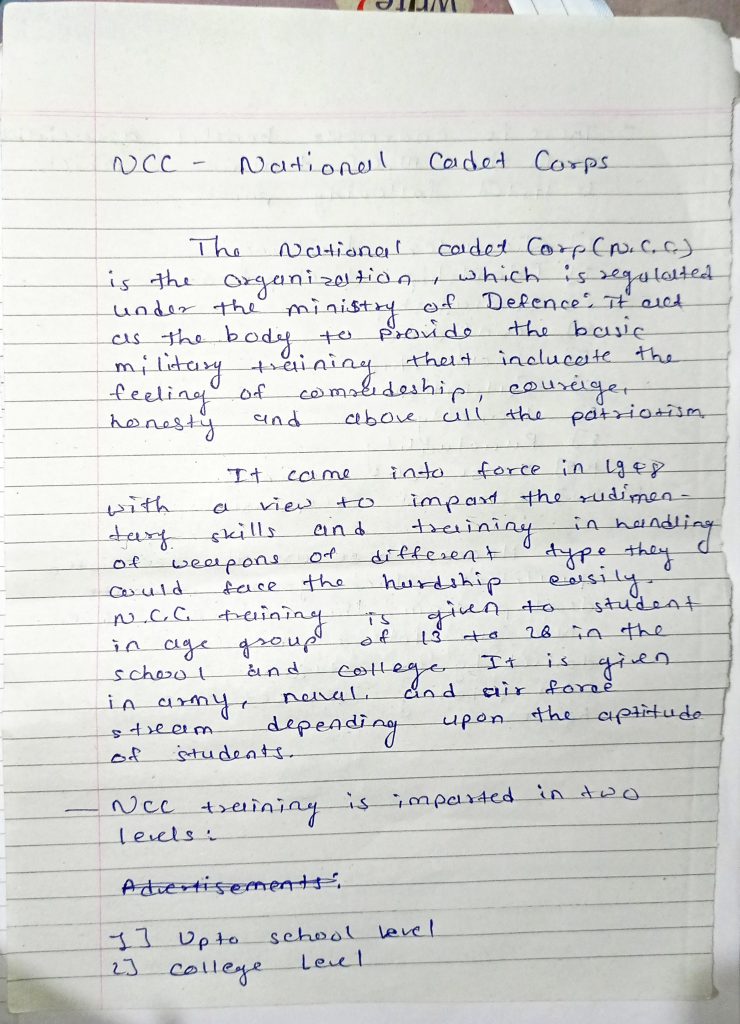 write
NCC - National Cadet Corps
The National cadet Corp (N.C.C.)
is the organization, which is regulated
under the ministry of Defence. It act
as the body to provide the basic
military training that inclucate the
feeling of comradeship, courage,
honesty and above all the patriotism
It came into force in 1948
with a view to impart the rudimen-
tary skills and training in handling
of weapons of different type they
could face the hardship easily.
N.C.C. training is given to student
in age group of 13 to 28 in the
school and college. It is given
in army, naval, and air force
stream depending upon the aptitude
of students.
— NCC training is imparted in two
levels:
Advertisements:
1] Upto school level
2] college level